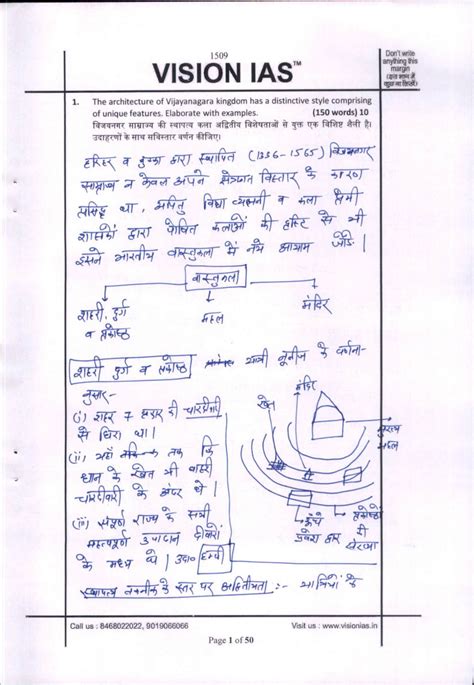 1509
VISION IAS™
Don't write anything this margin
(इस भाग में कुछ ना लिखें)
1. The architecture of Vijayanagara kingdom has a distinctive style comprising
of unique features. Elaborate with examples. (150 words) 10
विजयनगर साम्राज्य की स्थापत्य कला अद्वितीय विशेषताओं से युक्त एक विशिष्ट शैली है।
उदाहरणों के साथ सविस्तार वर्णन कीजिए।
हरिहर व बुक्का द्वारा स्थापित (1336-1565) विजयनगर
साम्राज्य न केवल अपने क्षेत्रीय विस्तार के कारण
प्रसिद्ध था, अपितु विद्या व्यसनी व कला प्रेमी
शासकों द्वारा पोषित कलाओं की दृष्टि से भी
इसने भारतीय वास्तुकला में नये आयाम जोड़े।
वास्तुकला
शहरी, दुर्ग
व प्रकोष्ठ
महल
मंदिर
शहरी दुर्ग व प्रकोष्ठ यात्री नूनीज के वर्णना-
नुसार-
(i) शहर 7 प्रकार की चारदीवारी
से घिरा था।
(ii) यहाँ तक कि
धान के खेत भी बाहरी
चारदीवारी के अंदर थे।
(iii) संपूर्ण राज्य के सभी
महत्वपूर्ण उत्पादन दीवारों
के मध्य थे। उदा० हम्पी
खेत
मंदिर
मुख्य
महल
ऊँचे
प्रवेश द्वार
प्रकोष्ठों
की
श्रृंखला
स्थापत्य तकनीक के स्तर पर अद्वितीयता :-
Call us : 8468022022, 9019066066
Visit us : www.visionias.in
Page 1 of 50